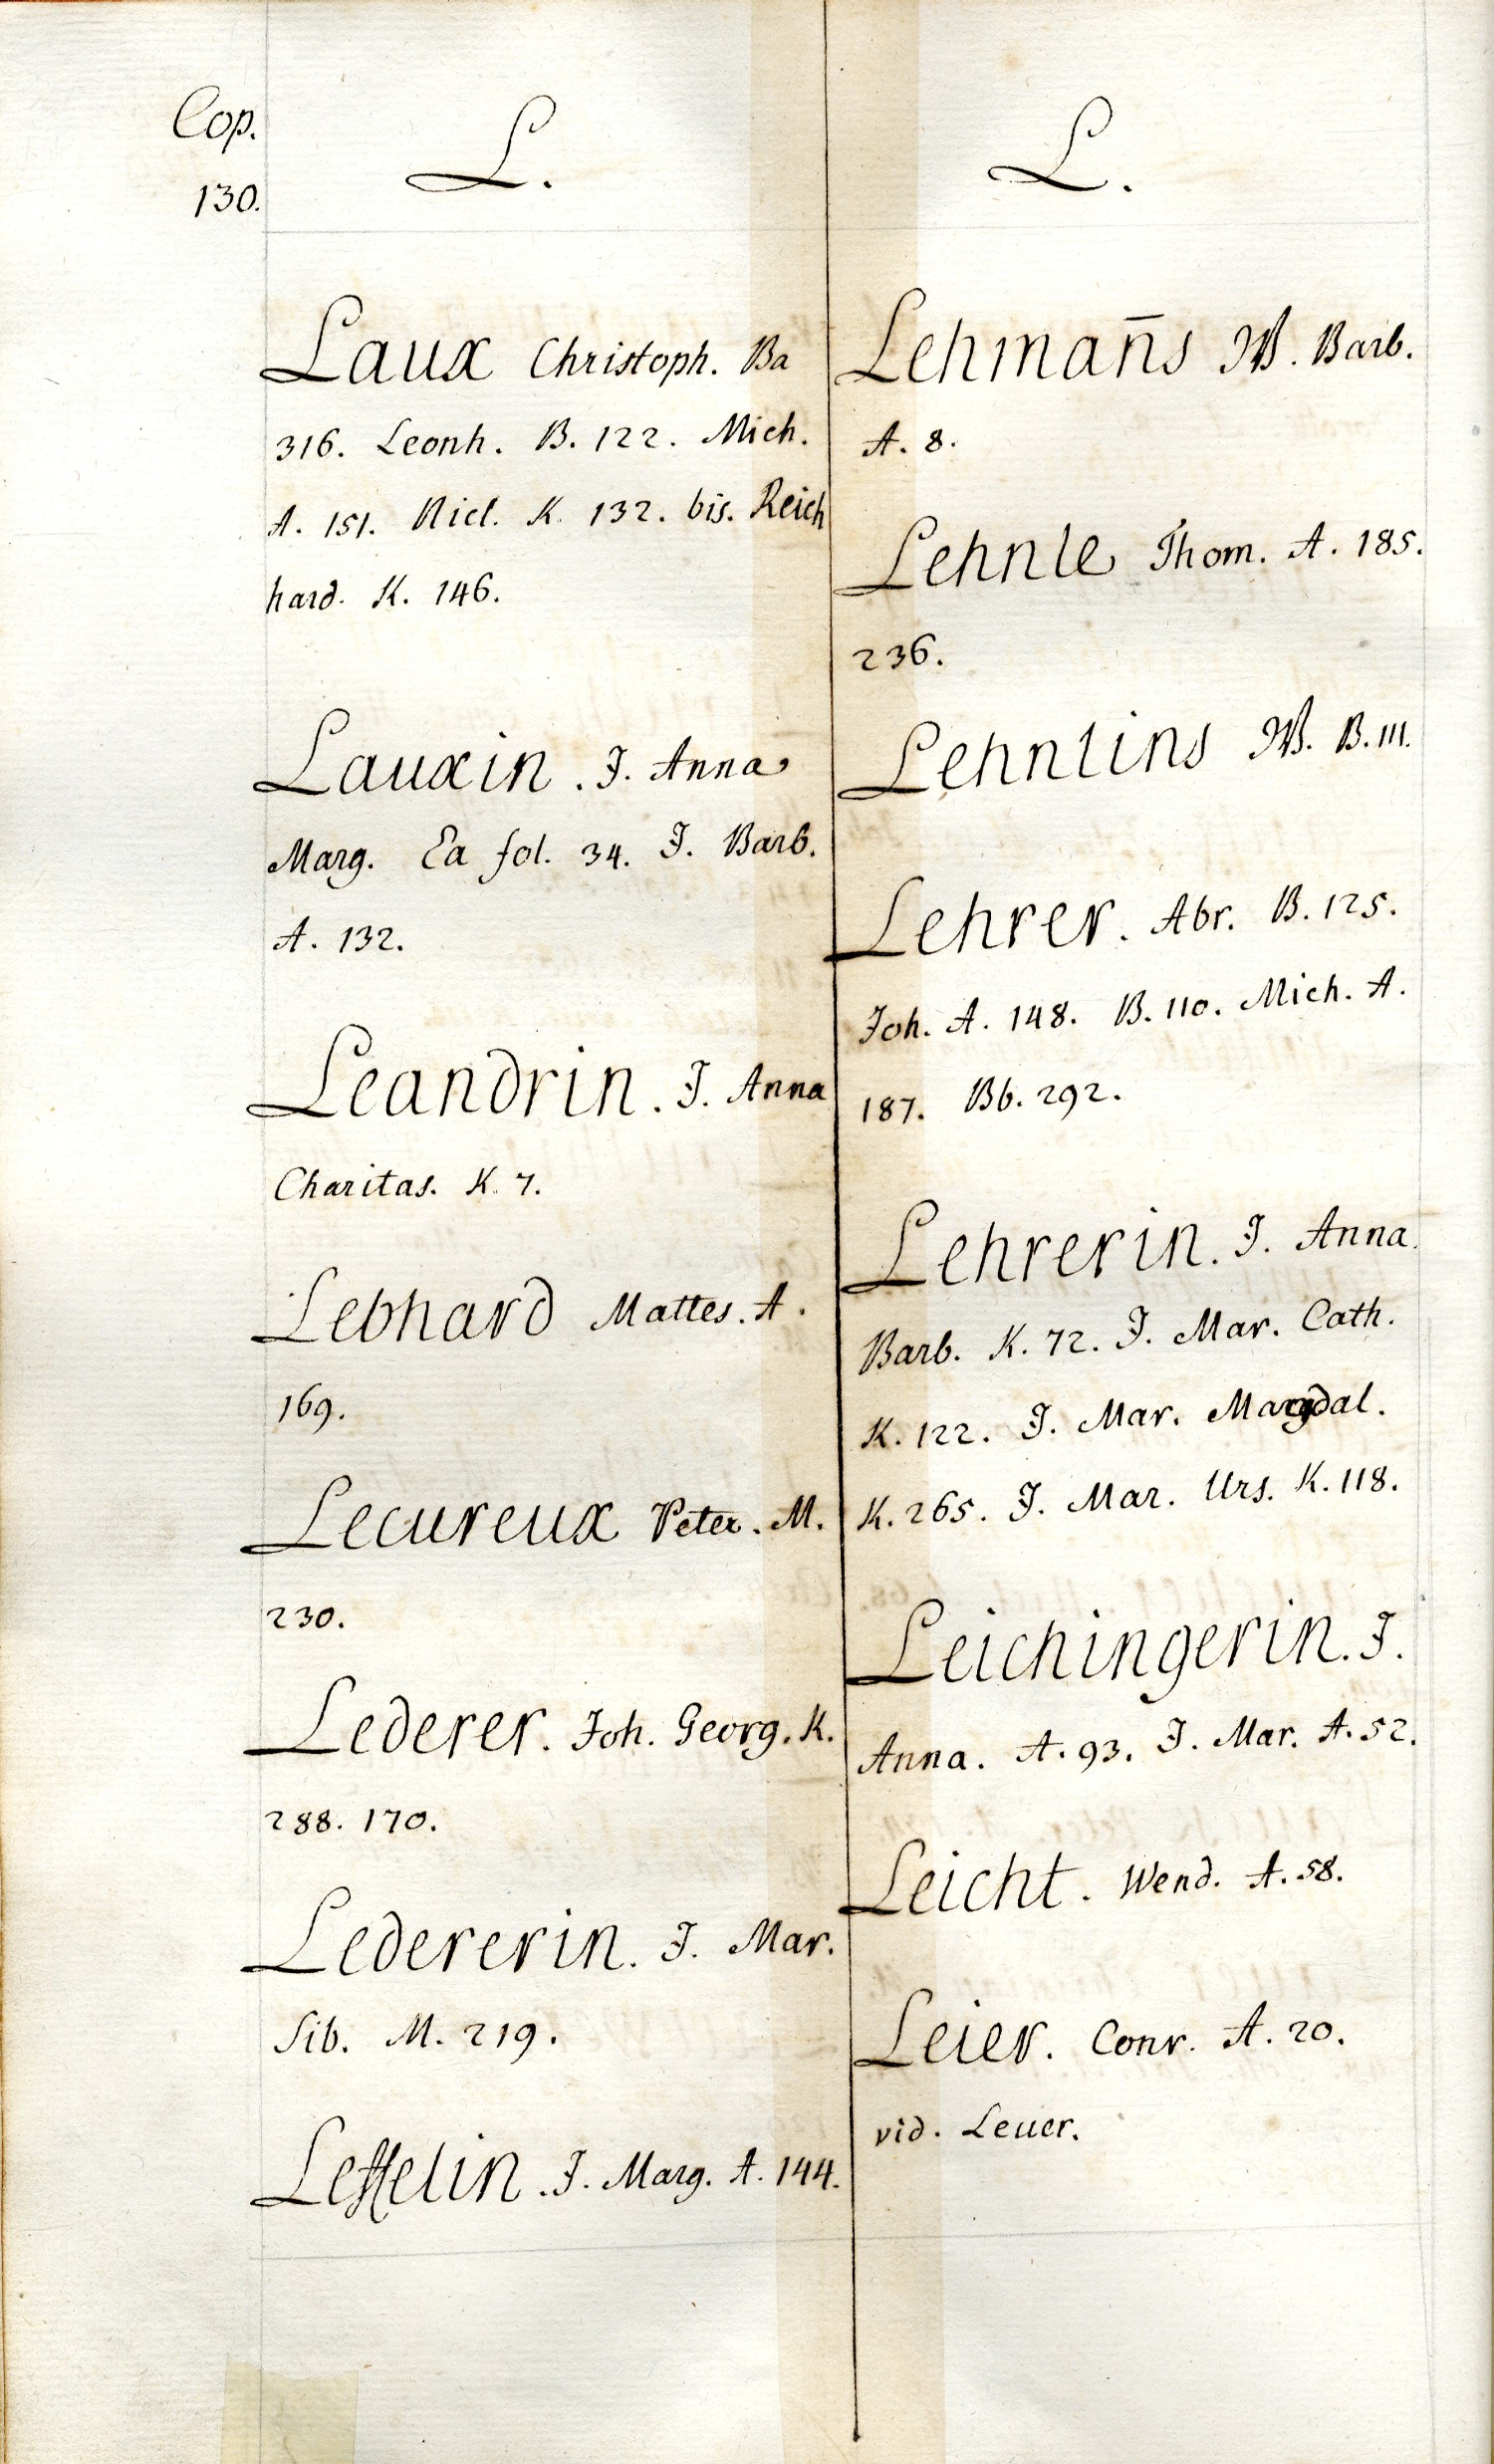 Cop.
130.
L.
Laux Christoph. Ba
316. Leonh. B. 122. Mich.
A. 151. Nicl. K. 132. bis. Reich
hard. K. 146.
Lauxin. J. Anna
Marg. Ea fol. 34. J. Barb.
A. 132.
Leandrin. J. Anna
Charitas. K. 7.
Lebhard Mattes. A.
169.
Lecureux Peter. M.
230.
Lederer. Joh. Georg. K.
288. 170.
Ledererin. J. Mar.
Sib. M. 219.
Leffelin. J. Marg. A. 144.
L.
Lehman̄s W. Barb.
A. 8.
Lehnle Thom. A. 185.
236.
Lehnlins W. B. 111.
Lehrer. Abr. B. 125.
Joh. A. 148. B. 110. Mich. A.
187. Bb. 292.
Lehrerin. J. Anna
Barb. K. 72. J. Mar. Cath.
K. 122. J. Mar. Magdal.
K. 265. J. Mar. Urs. K. 118.
Leichingerin. J.
Anna. A. 93. J. Mar. A. 52.
Leicht. Wend. A. 58.
Leier. Conr. A. 20.
vid. Leuer.